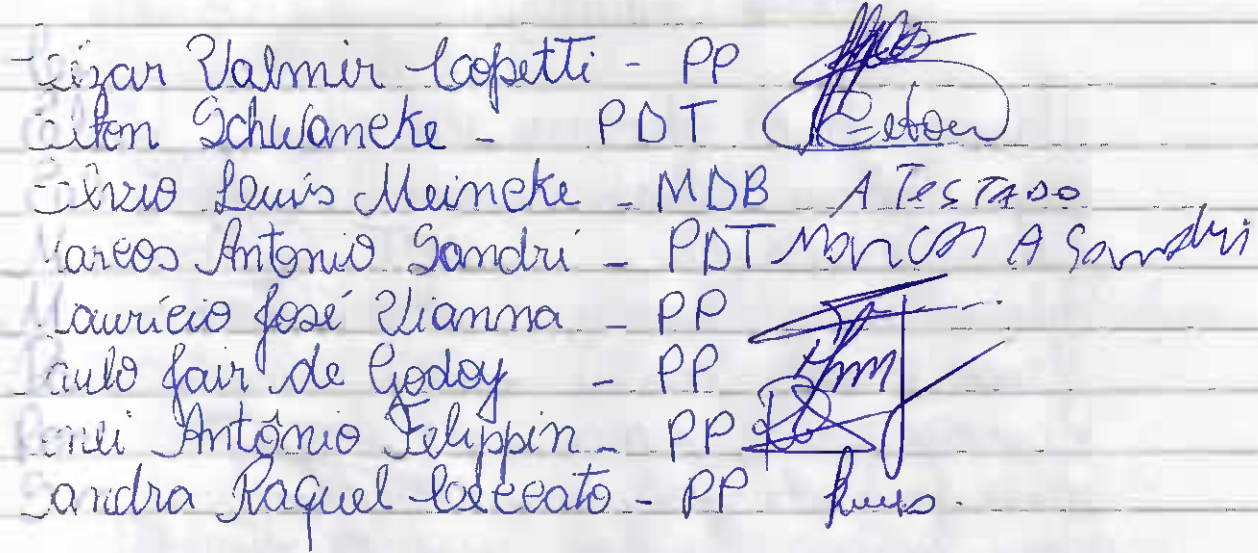 Cézar Valmir Copetti - PP
Elton Schwaneke - PDT Elton
Luis Meincke - MDB ATESTADO
Marcos Antonio Sandri - PDT Marcos A Sandri
Maurício José Vianna - PP
Paulo Jair de Godoy - PP
Antônio Felippin - PP
Sandra Raquel Ceccato - PP